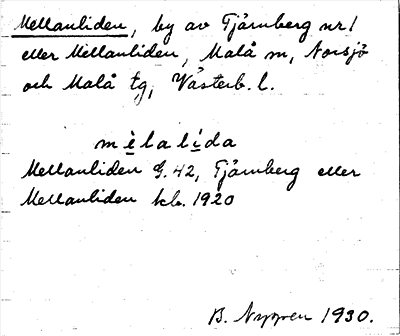 Mellanliden, by av Tjärnberg nr 1
eller Mellanliden, Malå sn, Norsjö
och Malå tg, Västerb. l.
mèlalída
Mellanliden G. 42, Tjärnberg eller
Mellanliden kb. 1920
B. Nygren 1930.